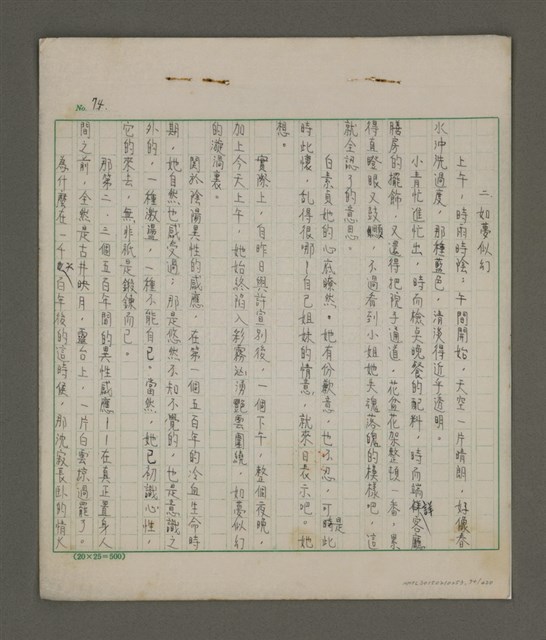 No. 74.
二如夢似幻
上午，時雨時陰；午間開始，天空一片晴朗，好像春
水沖洗過度，那種藍色，清淡得近乎透明。
小青忙進忙出，時而檢点晚餐的配料，時而端詳客廳
膳房的擺飾，又還得把院子通道，花盆花架整頓一番，累
得直瞪眼又鼓腮。不過看到小姐她失魂落魄的模樣吧，這
就全認了的意思。
白素貞她的心底瞭然。她有份歉意，也不忍，可是時此
時此懷，乱得很哪！自己姐妹的情意，就來日表示吧。她
想。
實際上，自昨日與許宣別後，一個下午，整個夜晚，
加上今天上午，她始終陷入彩霧汹湧艷雲圍繞，如夢似幻
的漩渦裏。
關於陰陽異性的感應，在第一個五百年的冷血生命時
期，她自然也感受過；那是悠然不知不覺的，也是意識之
外的，一種激盪，一種不能自己。當然，她已初識心性，
它的來去，無非祇是鍛鍊而已。
那第二、三個五百年間的異性感應！！在真正置身人
間之前，全然是古井映月，靈台上，一片白雲掠過罷了。
為什麼在一千六百年後的這時候，那沈寂長臥的情火
(20×25=500)